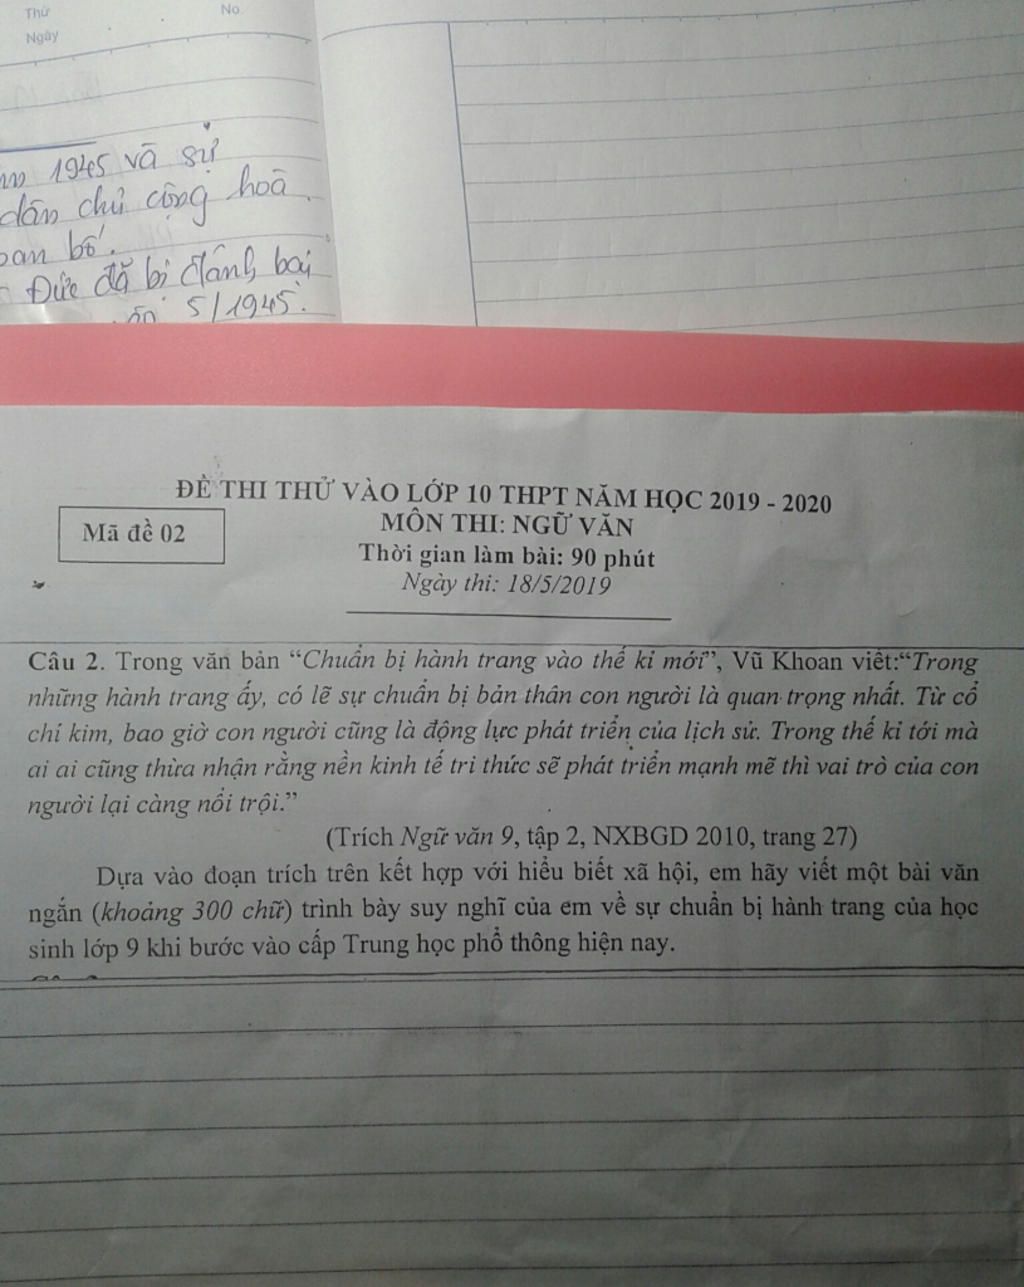 Thứ
No.
Ngày
1945 và sự
dân chủ cộng hoà.
bố.
- Đức đã bị đánh bại
5/1945.
ĐỀ THI THỬ VÀO LỚP 10 THPT NĂM HỌC 2019 - 2020
Mã đề 02
MÔN THI: NGỮ VĂN
Thời gian làm bài: 90 phút
Ngày thi: 18/5/2019
Câu 2. Trong văn bản “Chuẩn bị hành trang vào thế kỉ mới”, Vũ Khoan viết:“Trong
những hành trang ấy, có lẽ sự chuẩn bị bản thân con người là quan trọng nhất. Từ cổ
chí kim, bao giờ con người cũng là động lực phát triển của lịch sử. Trong thế kỉ tới mà
ai ai cũng thừa nhận rằng nền kinh tế tri thức sẽ phát triển mạnh mẽ thì vai trò của con
người lại càng nổi trội.”
(Trích Ngữ văn 9, tập 2, NXBGD 2010, trang 27)
Dựa vào đoạn trích trên kết hợp với hiểu biết xã hội, em hãy viết một bài văn
ngắn (khoảng 300 chữ) trình bày suy nghĩ của em về sự chuẩn bị hành trang của học
sinh lớp 9 khi bước vào cấp Trung học phổ thông hiện nay.